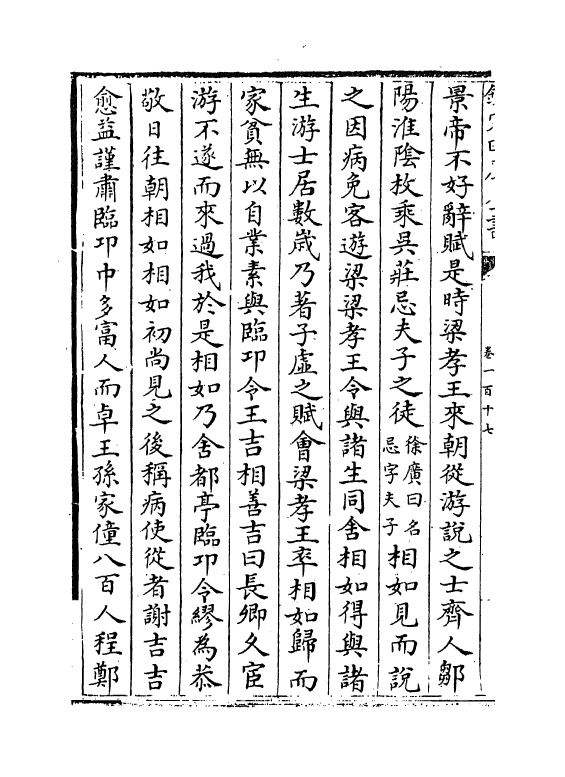 卷一百十七
景帝不好辭賦是時梁孝王來朝從游說之士齊人鄒
陽淮陰枚乘吳莊忌夫子之徒徐廣曰名忌字夫子相如見而說
之因病免客遊梁梁孝王令與諸生同舍相如得與諸
生游士居數歲乃著子虛之賦會梁孝王卒相如歸而
家貧無以自業素與臨卭令王吉相善吉曰長卿久宦
游不遂而來過我於是相如乃舍都亭臨卭令繆為恭
敬日往朝相如相如初尚見之後稱病使從者謝吉吉
愈益謹肅臨卭中多富人而卓王孫家僮八百人程鄭